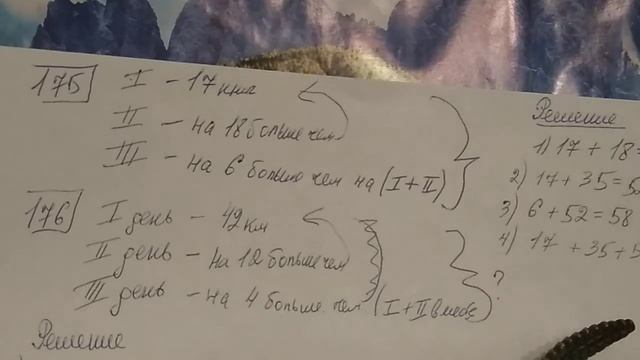 175 I - 17 книг
II - на 18 больше чем
III - на 6 больше чем на (I + II)
176 I день - 42 км
II день - на 12 больше чем
III день - на 4 больше чем (I + II вместе) ?
Решение
Решение
1) 17 + 18 =
2) 17 + 35 = 5
3) 6 + 52 = 58
4) 17 + 35 + 5